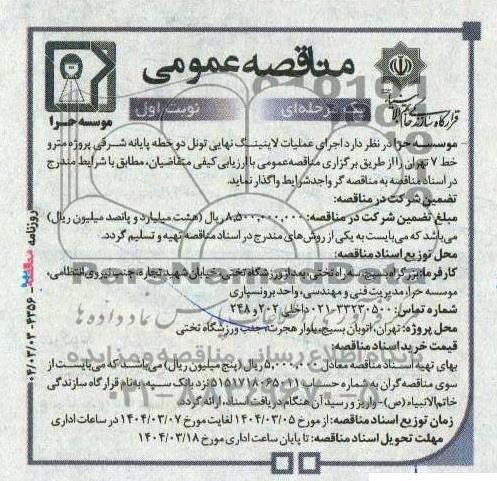 مناقصه عمومی
یک مرحله‌ای
نوبت اول
موسسه حرا
موسسه حرا در نظر دارد اجرای عملیات لاینینگ نهایی تونل دو خطه پایانه شرقی پروژه مترو
خط ۷ تهران را از طریق برگزاری مناقصه عمومی با ارزیابی کیفی متقاضیان، مطابق با شرایط مندرج
در اسناد مناقصه به مناقصه گر واجد شرایط واگذار نماید.
تضمین شرکت در مناقصه:
مبلغ تضمین شرکت در مناقصه: ۸,۵۰۰,۰۰۰,۰۰۰ ریال (هشت میلیارد و پانصد میلیون ریال)
می‌باشد که می‌بایست به یکی از روش‌های مندرج در اسناد مناقصه تهیه و تسلیم گردد.
محل توزیع اسناد مناقصه:
کارفرما: بزرگراه بسیج، سه راه تختی، بعد از ورزشگاه تختی، خیابان شهید تجاره، جنب نیروی انتظامی،
موسسه حرا، مدیریت فنی و مهندسی، واحد برونسپاری
شماره تماس: ۳۳۲۳۰۵۰۰-۰۲۱ داخلی ۲۰۲ و ۲۴۸
محل پروژه: تهران، اتوبان بسیج، بلوار هجرت، جنب ورزشگاه تختی
قیمت خرید اسناد مناقصه:
بهای تهیه اسناد مناقصه معادل ۵,۰۰۰,۰۰۰ ریال (پنج میلیون ریال) می‌باشد که می‌بایست از
سوی مناقصه گران به شماره حساب نزد بانک سپه، به نام قرارگاه سازندگی
خاتم الانبیاء (ص) - واریز و رسید آن هنگام دریافت اسناد، ارائه گردد
زمان توزیع اسناد مناقصه: از مورخ ۱۴۰۴/۰۳/۰۵ لغایت مورخ ۱۴۰۴/۰۳/۰۷ در ساعات اداری
مهلت تحویل اسناد مناقصه: تا پایان ساعت اداری مورخ ۱۴۰۴/۰۳/۱۸
روزنامه مناقصه ۴۳۵۶ - ۰۴/۰۳/۰۳
پایگاه اطلاع رسانی مناقصه و مزایده